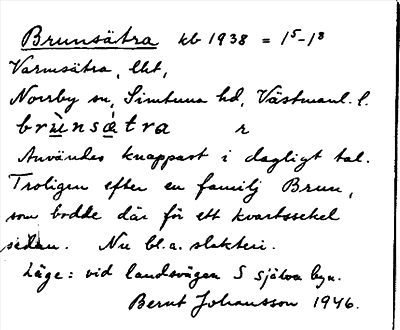 Brunsätra kb 1938 = 1⁵-1⁸
Varmsätra, lht,
Norrby sn, Simtuna hd, Västmanl. l.
brùnsátra r
Användes knappast i dagligt tal.
Troligen efter en familj Brun,
som bodde där för ett kvartssekel
sedan. Nu bl.a. slakteri.
Läge: vid landsvägen S själva byn.
Bernt Johansson 1946.